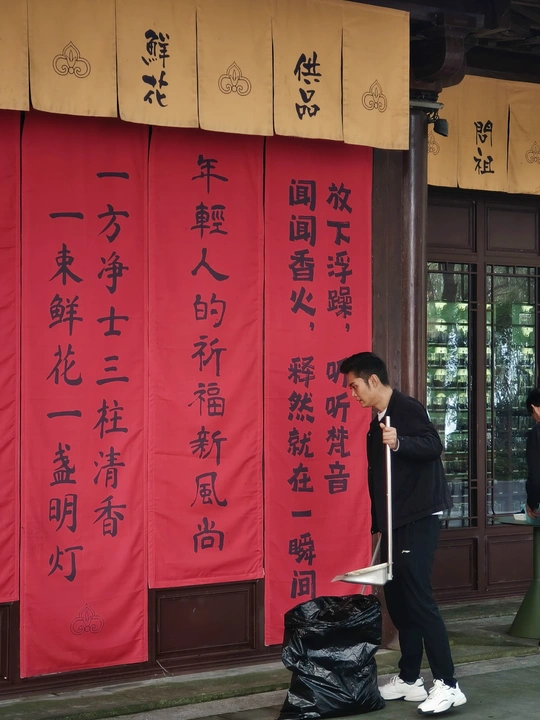 鮮花
供品
問祖
放下浮躁，听听梵音
闻闻香火，释然就在一瞬间
年輕人的祈福新風尚
一方净士三柱清香
一束鲜花一盏明灯